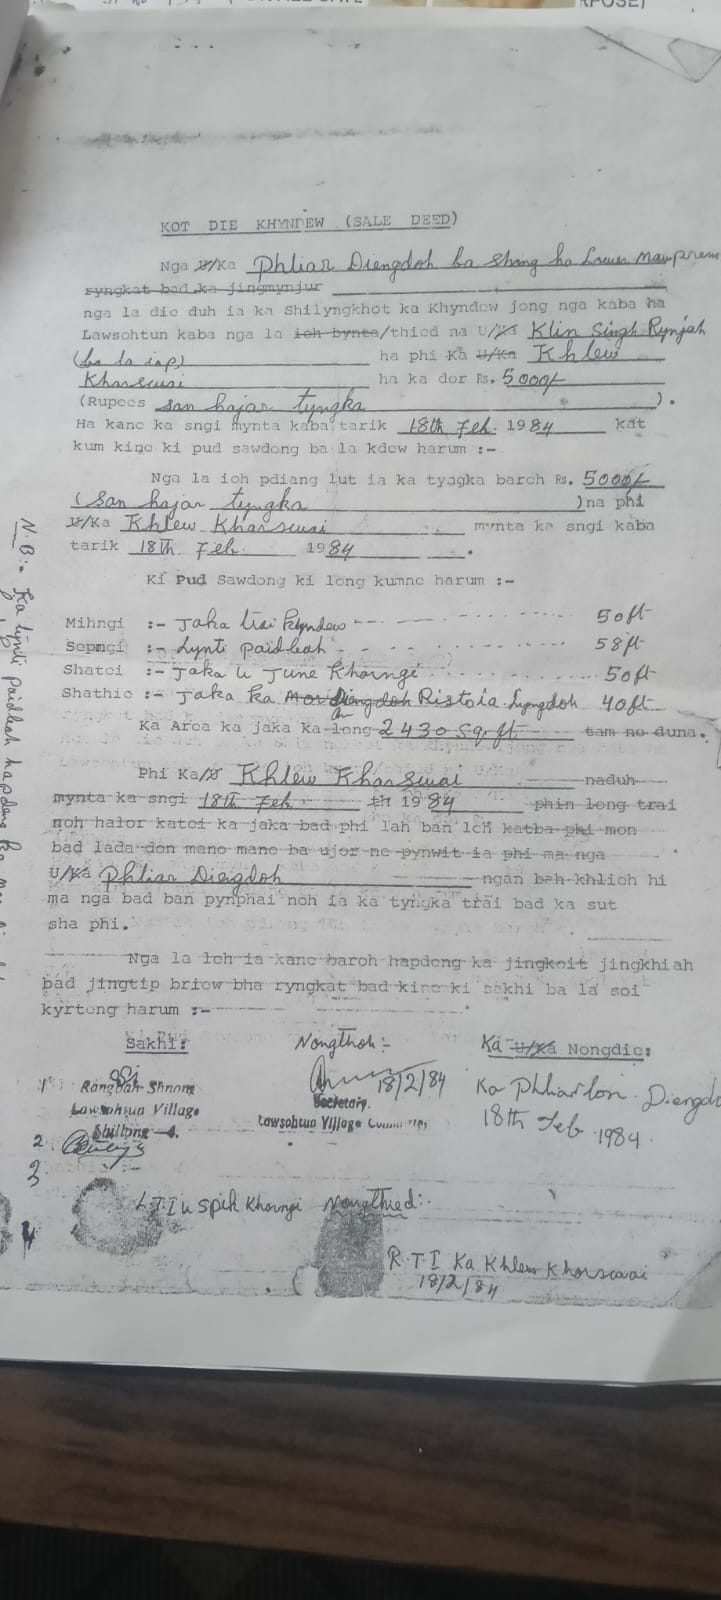 KOT DIE KHYNDEW (SALE DEED)
Nga U/Ka Phliar Diengdoh ba shong ha Lower Mawprem
ryngkat bad ka jingmynjur
nga la die duh ia ka Shilyngkhot ka Khyndew jong nga kaba ha
Lawsohtun kaba nga la ioh bynta/thied na U/Ka Klin Singh Rynjah
(ba la iap) ha phi Ka U/Ka Khlew
Kharswai ha ka dor Rs. 5000/-
(Rupees san hajar tyngka ).
Ha kane ka sngi mynta kaba tarik 18th Feb. 1984 kat
kum kine ki pud sawdong ba la kdew harum :-
Nga la ioh pdiang lut ia ka tyngka baroh Rs. 5000/-
(San hajar tyngka )na phi
U/Ka Khlew Kharswai mynta ka sngi kaba
tarik 18th Feb. 1984 .
Ki Pud Sawdong ki long kumne harum :-
Mihngi :- Jaka trai khyndew 50ft
Sepngi :- Lynti paidbah 58ft
Shatei :- Jaka u June Khongngi 50ft
Shathie :- Jaka ka Diengdoh Ristoia Lyngdoh 40ft
Ka Area ka jaka ka long 2430 Sq. ft tam ne duna.
Phi Ka/U Khlew Kharswai naduh
mynta ka sngi 18th Feb th 1984 phin long trai
noh halor katei ka jaka bad phi lah ban leh katba phi mon
bad lada don mano mano ba ujor ne pynwit ia phi ma nga
U/Ka Phliar Diengdoh ngan bah khlieh hi
ma nga bad ban pynphai noh ia ka tyngka trai bad ka sut
sha phi.
Nga la leh ia kane baroh hapdeng ka jingkoit jingkhiah
bad jingtip briew bha ryngkat bad kine ki sakhi ba la soi
kyrteng harum :-
Sakhi: Nongthoh :- Ka U/Ka Nongdie:
1 Rangbah Shnong 18/2/84 Ka Phliarlon Diengdo
Lawsohtun Village Secretary. 18th Feb 1984.
Shillong-4. Lawsohtun Village
2.
3.
4 L.T.I u Spik Khongngi Nongthied:-
R.T.I Ka Khlew Kharswai
18/2/84
N.B:- Ka lynti paidbah hapdeng ka